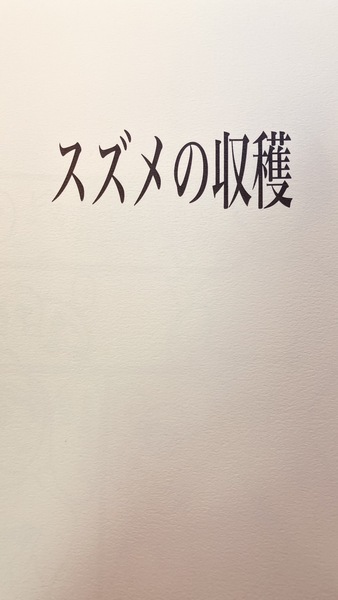 スズメの収穫